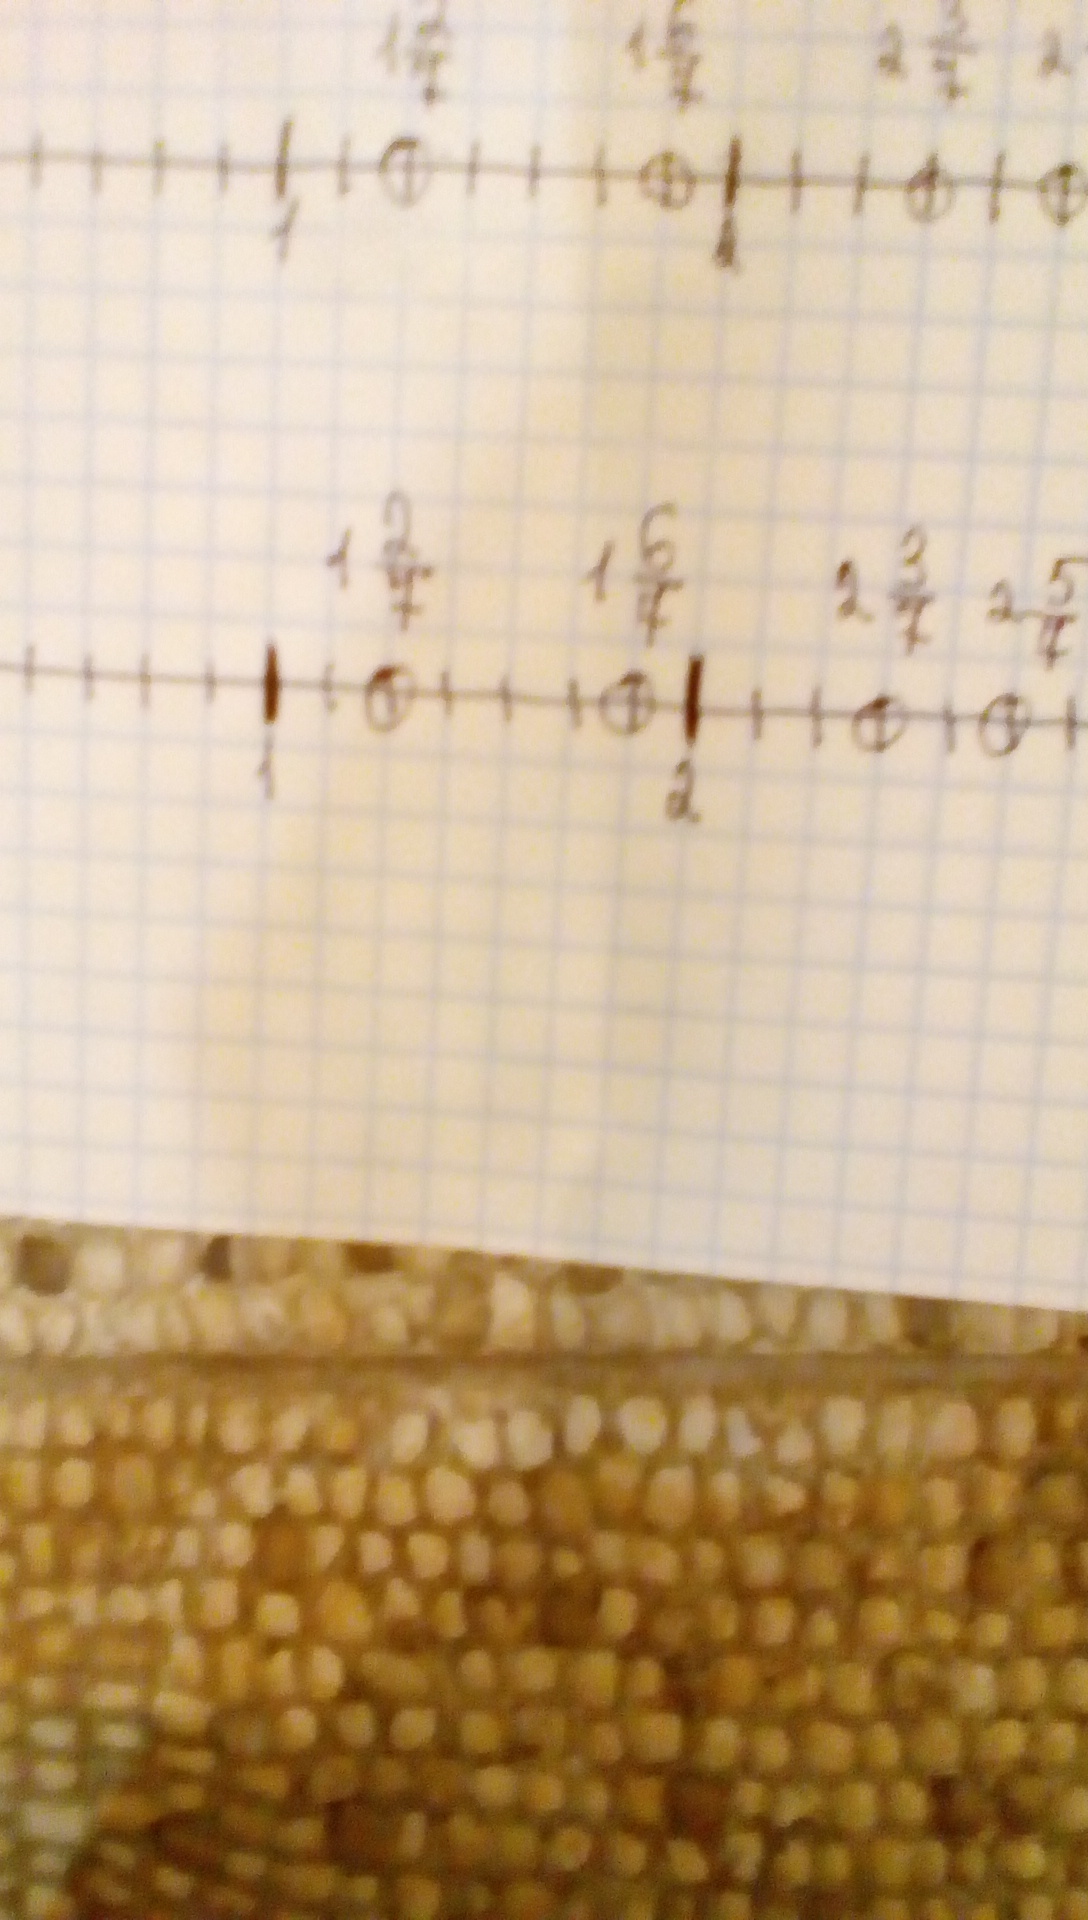 1 2/7 1 6/7 2 3/7 2
1
1 2/7 1 6/7 2 3/7 2 5/7
1 2